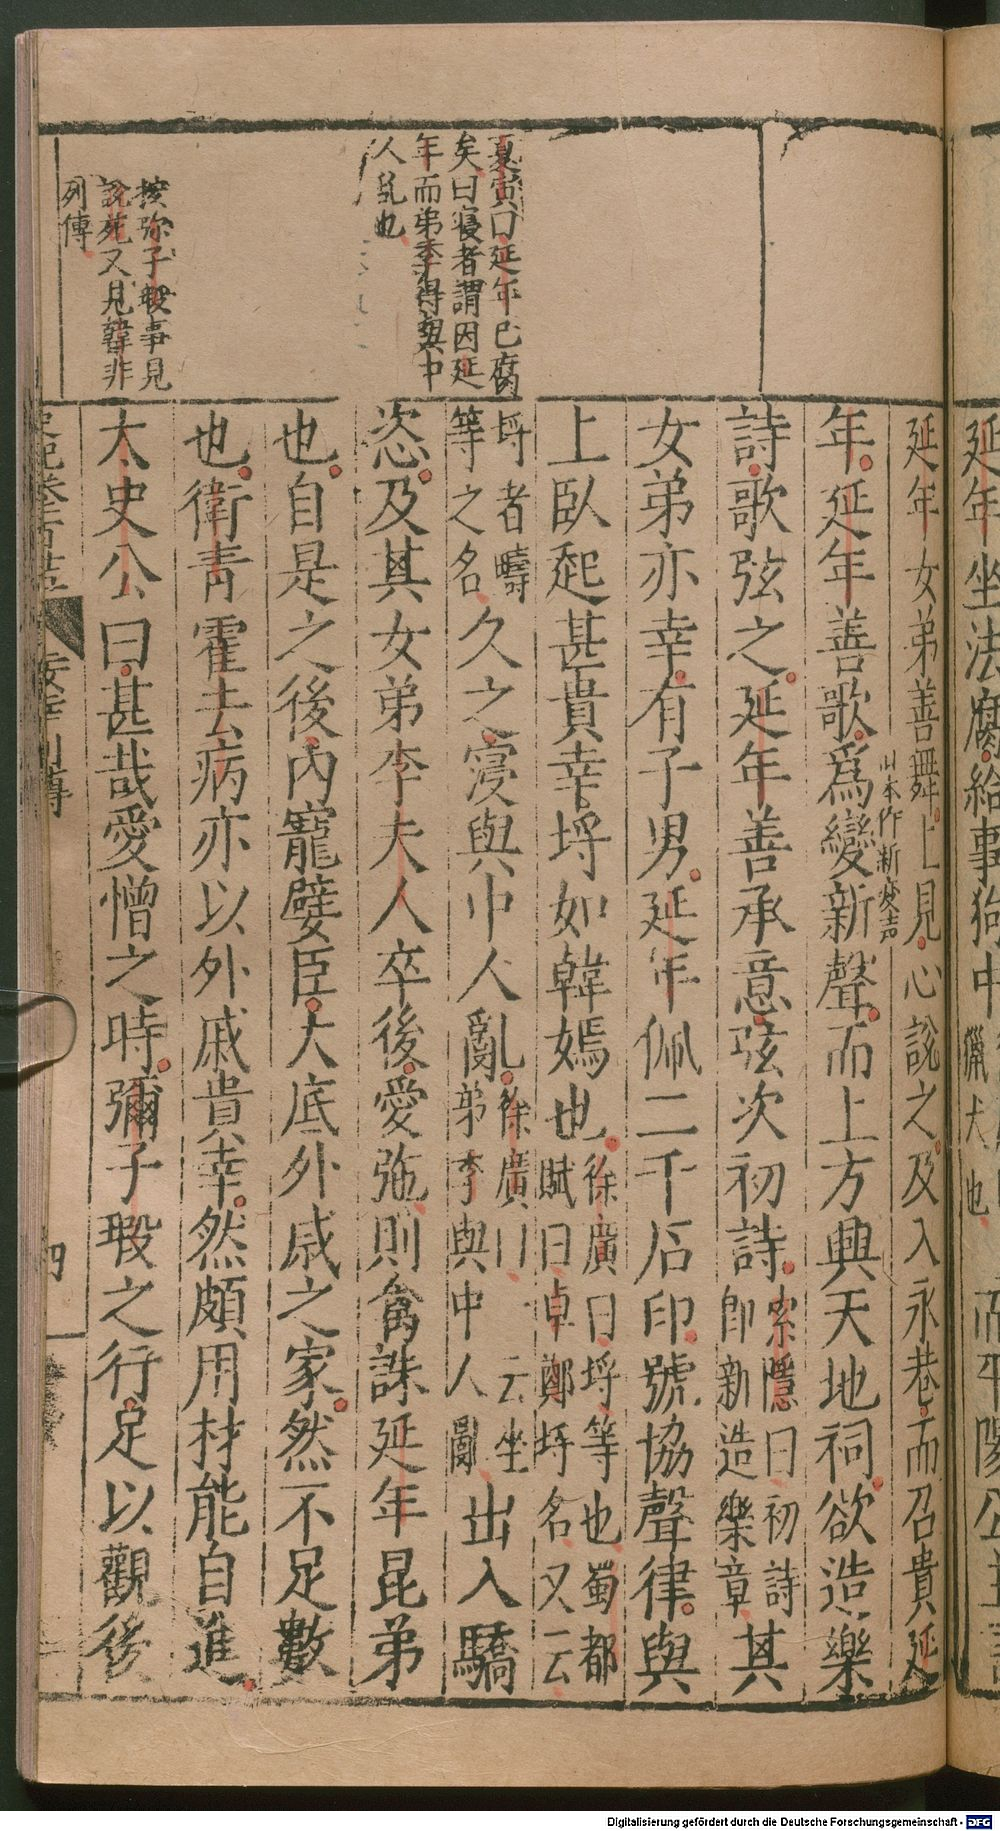 延年坐法腐給事狗中 獵犬也
延年女弟善舞上見心說之及入永巷而召貴延
旧本作新変声
年延年善歌爲變新聲而上方興天地祠欲造樂
詩歌弦之延年善承意弦次初詩 索隱曰初詩 卽新造樂章 其
女弟亦幸有子男延年佩二千石印號協聲律與
上臥起甚貴幸埒如韓嫣也 徐廣曰埒等也蜀都 賦曰卓鄭埒名又云
埒者疇 等之名 久之寖與中人亂 徐廣曰一云坐 弟季與中人亂 出入驕
恣及其女弟李夫人卒後愛弛則禽誅延年昆弟
也自是之後內寵嬖臣大底外戚之家然不足數
也衛青霍去病亦以外戚貴幸然頗用材能自進
太史公曰甚哉愛憎之時彌子瑕之行足以觀後
夏寅曰延年已腐
矣曰寖者謂因延
年而弟季得與中
人乱也
按弥子瑕事見
說苑又見韓非
列傳
四
Digitalisierung gefördert durch die Deutsche Forschungsgemeinschaft - DFG